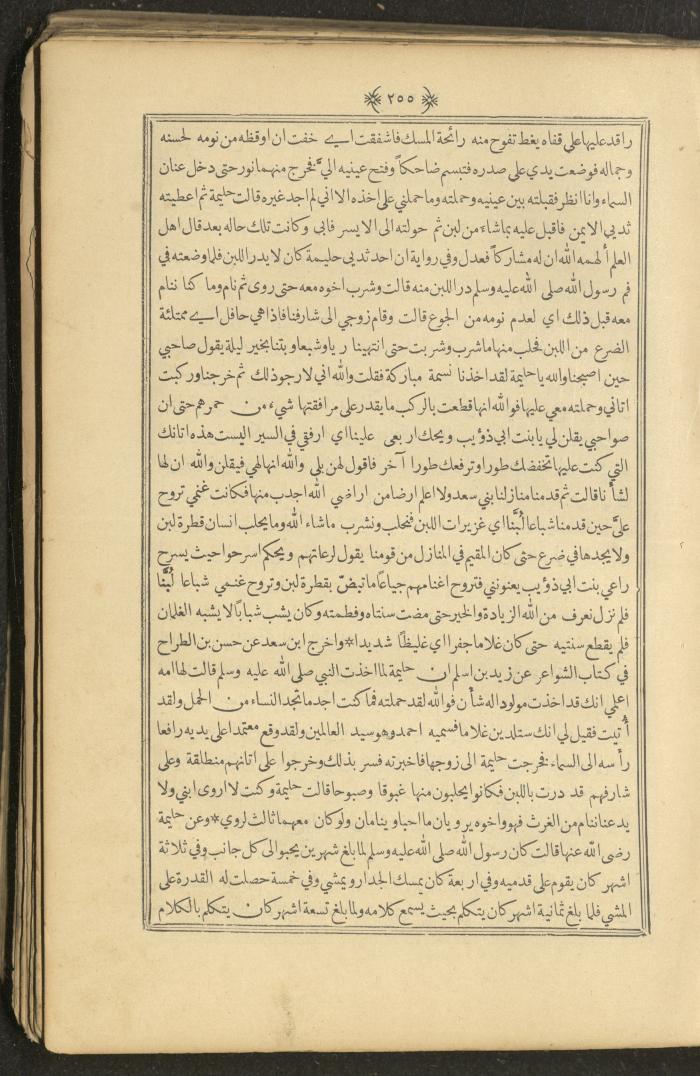 ﴿ ٢٥٥ ﴾
راقد عليها على قفاه يغط تفوح منه رائحة المسك فاشفقت اے خفت ان اوقظه من نومه لحسنه
وجماله فوضعت يدي على صدره فتبسم ضاحكاً وفتح عينيه اليَّ فخرج منهما نور حتى دخل عنان
السماء وانا انظر فقبلته بين عينيه وحملته وما حملني على اخذه الا اني لم اجد غيره قالت حليمة ثم اعطيته
ثديي الايمن فاقبل عليه بما شاء من لبن ثم حولته الى الايسر فابى وكانت تلك حاله بعد قال اهل
العلم ألهمه الله ان له مشاركاً فعدل وفي رواية ان احد ثديي حليمة كان لا يدر اللبن فلما وضعته في
فم رسول الله صلى الله عليه وسلم در اللبن منه قالت وشرب اخوه معه حتى روى ثم نام وما كنا ننام
معه قبل ذلك اي لعدم نومه من الجوع قالت وقام زوجي الى شارفنا فاذا هي حافل اے ممتلئة
الضرع من اللبن فحلب منها ما شرب وشربت حتى انتهينا ريا وشبعا وبتنا بخير ليلة يقول صاحبي
حين اصبحنا والله يا حليمة لقد اخذنا نسمة مباركة فقلت والله اني لارجو ذلك ثم خرجنا وركبت
اتاني وحملته معي عليها فوالله انها قطعت بالركب ما يقدر على مرافقتها شيء من حمرهم حتى ان
صواحبي يقلن لي يا بنت ابي ذؤيب ويحك اربعى علينا اي ارفقي في السير اليست هذه اتانك
التي كنت عليها تخفضك طورا وترفعك طورا آخر فاقول لهن بلى والله انها لهي فيقلن والله ان لها
لشأنا قالت ثم قدمنا منازلنا بني سعد ولا اعلم ارضا من اراضي الله اجدب منها فكانت غنمي تروح
عليَّ حين قدمنا شباعا لُبَّنًا اي غزيرات اللبن فنحلب ونشرب ما شاء الله وما يحلب انسان قطرة لبن
ولا يجدها في ضرع حتى كان المقيم في المنازل من قومنا يقول لرعاتهم ويحكم اسرحوا حيث يسرح
راعي بنت ابي ذؤيب يعنونني فتروح اغنامهم جياعًا ما تبضّ بقطرة لبن وتروح غنمي شباعا لُبَّنًا
فلم نزل نعرف من الله الزيادة والخير حتى مضت سنتاه وفطمته وكان يشب شبابًا لا يشبه الغلمان
فلم يقطع سنتيه حتى كان غلاما جفرا اي غليظًا شديدا * واخرج ابن سعد عن حسن بن الطراح
في كتاب الشواعر عن زيد بن اسلم ان حليمة لما اخذت النبي صلى الله عليه وسلم قالت لها امه
اعلمي انك قد اخذت مولودا له شأن فوالله لقد حملته فما كنت اجد ما تجد النساء من الحمل ولقد
أُتيت فقيل لي انك ستلدين غلاما فسميه احمد وهو سيد العالمين ولقد وقع معتمدا على يديه رافعا
رأسه الى السماء فخرجت حليمة الى زوجها فاخبرته فسر بذلك وخرجوا على اتانهم منطلقة وعلى
شارفهم قد درت باللبن فكانوا يحلبون منها غبوقا وصبوحا قالت حليمة وكنت لا اروى ابني ولا
يدعنا ننام من الغرث فهو واخوه يرويان ما احبا وينامان ولو كان معهما ثالث لروي * وعن حليمة
رضى الله عنها قالت كان رسول الله صلى الله عليه وسلم لما بلغ شهرين يحبو الى كل جانب وفي ثلاثة
اشهر كان يقوم على قدميه وفي اربعة كان يمسك الجدار ويمشي وفي خمسة حصلت له القدرة على
المشي فلما بلغ ثمانية اشهر كان يتكلم بحيث يسمع كلامه ولما بلغ تسعة اشهر كان يتكلم بالكلام